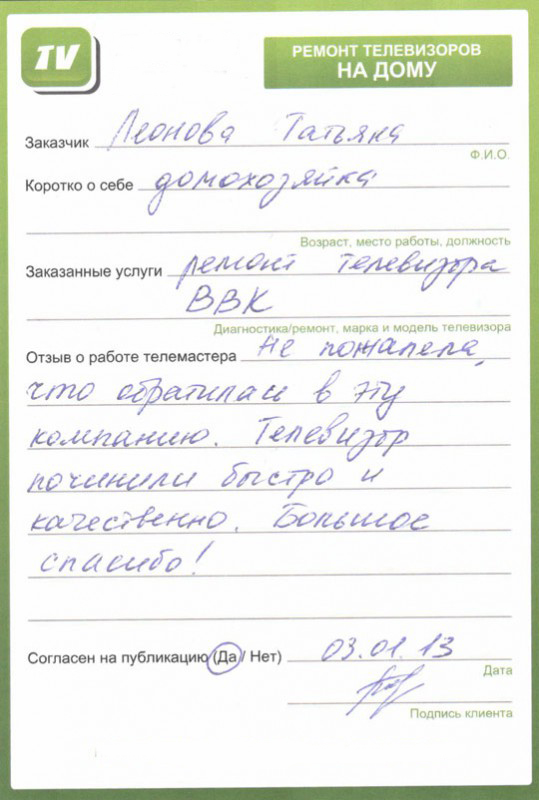 TV
РЕМОНТ ТЕЛЕВИЗОРОВ
НА ДОМУ
Заказчик Леонова Татьяна
Ф.И.О.
Коротко о себе домохозяйка
Возраст, место работы, должность
Заказанные услуги ремонт телевизора
BBK
Диагностика/ремонт, марка и модель телевизора
Отзыв о работе телемастера Не пожалела,
что обратилась в эту
компанию. Телевизор
починили быстро и
качественно. Большое
спасибо!
Согласен на публикацию (Да / Нет) 03.01.13
Дата
Подпись клиента